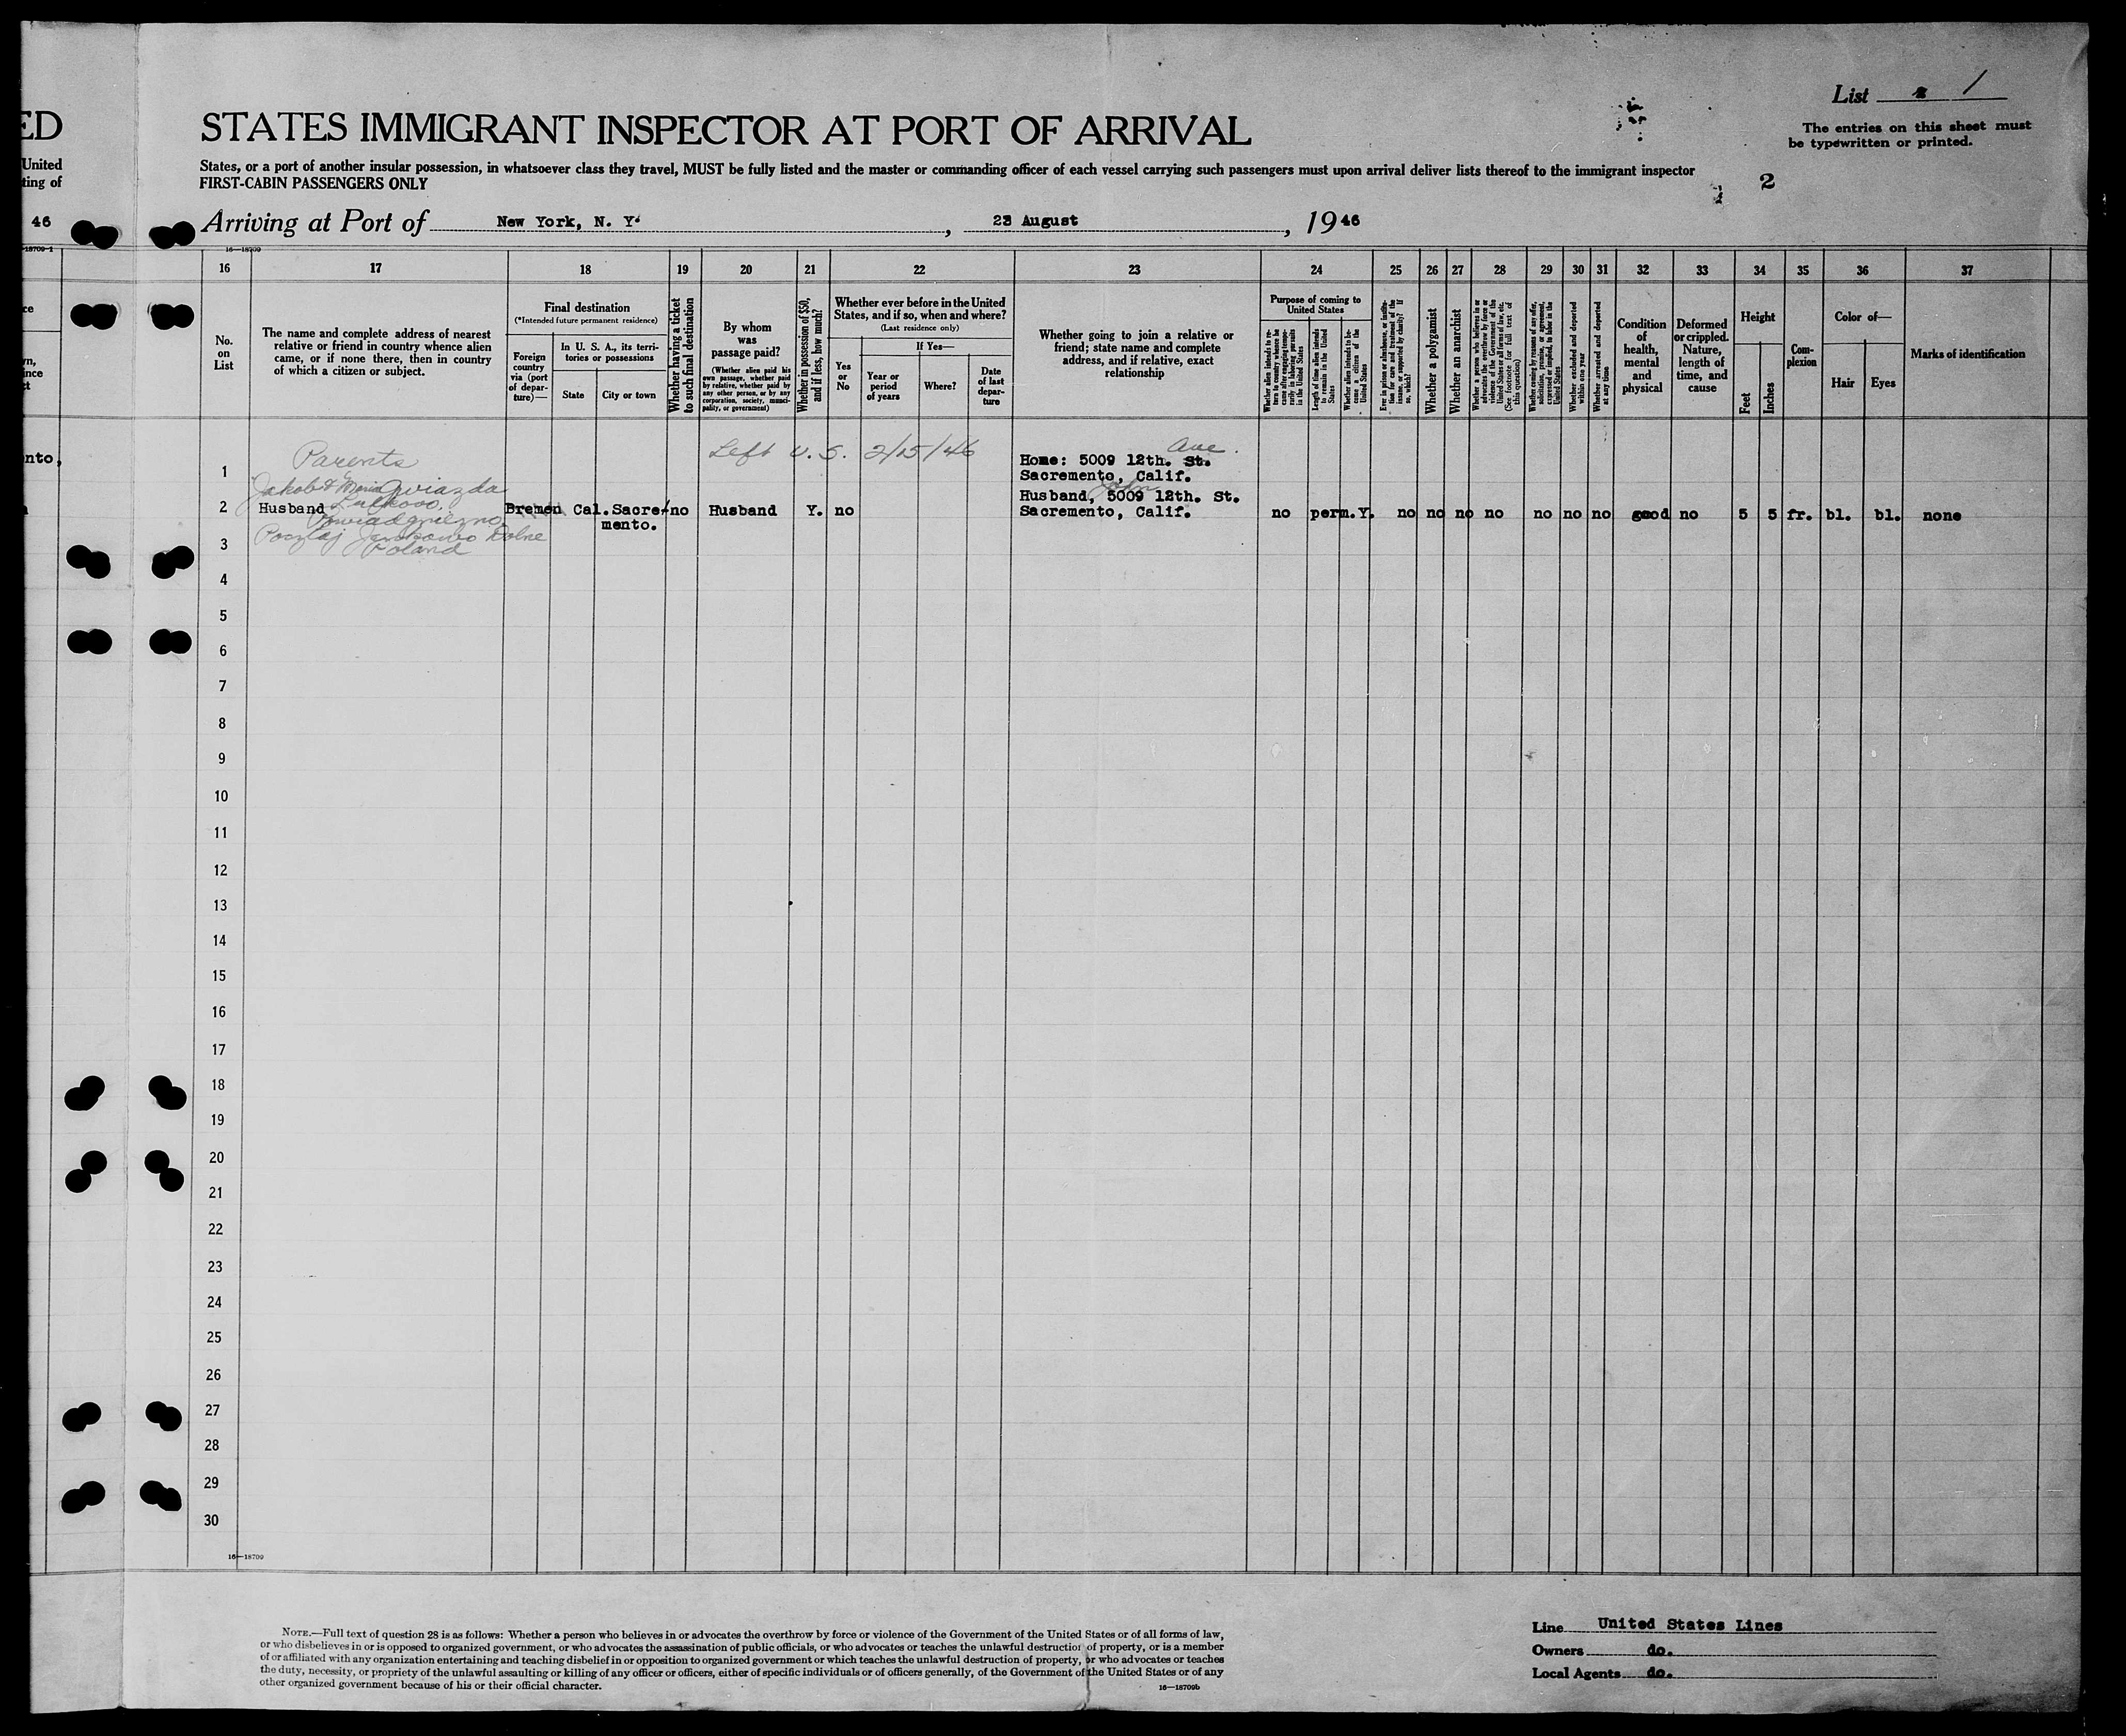 List 1
The entries on this sheet must
be typewritten or printed.
ED
STATES IMMIGRANT INSPECTOR AT PORT OF ARRIVAL
United
States, or a port of another insular possession, in whatsoever class they travel, MUST be fully listed and the master or commanding officer of each vessel carrying such passengers must upon arrival deliver lists thereof to the immigrant inspector
ting of
FIRST-CABIN PASSENGERS ONLY
2
46
Arriving at Port of New York, N. Y. , 23 August , 1946
16—18709
16 17 18 19 20 21 22 23 24 25 26 27 28 29 30 31 32 33 34 35 36 37
No.
on
List
The name and complete address of nearest
relative or friend in country whence alien
came, or if none there, then in country
of which a citizen or subject.
Final destination
(*Intended future permanent residence)
Foreign
country
via (port
of depar-
ture)—
In U. S. A., its terri-
tories or possessions
State
City or town
Whether having a ticket
to such final destination
By whom
was
passage paid?
(Whether alien paid his
own passage, whether paid
by relative, whether paid by
any other person, or by any
corporation, society, munici-
pality, or government)
Whether in possession of $50,
and if less, how much?
Whether ever before in the United
States, and if so, when and where?
(Last residence only)
Yes
or
No
If Yes—
Year or
period
of years
Where?
Date
of last
depar-
ture
Whether going to join a relative or
friend; state name and complete
address, and if relative, exact
relationship
Purpose of coming to
United States
Whether alien intends to re-
turn to country whence he
came after engaging tempo-
rarily in laboring pursuits
in the United States
Length of time alien intends
to remain in the United
States
Whether alien intends to be-
come a citizen of the
United States
Ever in prison or almshouse, or institu-
tion for care and treatment of the
insane, or supported by charity? If
so, which?
Whether a polygamist
Whether an anarchist
Whether a person who believes in or
advocates the overthrow by force or
violence of the Government of the
United States or all forms of law, etc.
(See footnote for full text of
this question)
Whether coming by reasons of any offer,
solicitation, promise, or agreement,
expressed or implied, to labor in the
United States
Whether excluded and deported
within one year
Whether arrested and deported
at any time
Condition
of
health,
mental
and
physical
Deformed
or crippled.
Nature,
length of
time, and
cause
Height
Feet
Inches
Com-
plexion
Color of—
Hair
Eyes
Marks of identification
nto,
1 Parents Left U.S. 2/15/46 Ave.
Home: 5009 12th. St.
Sacremento, Calif.
Jakob & Maria Gwiazda
John
Husband, 5009 12th. St.
2 Husband Bremen Cal. Sacre- no Husband Y. no Sacremento, Calif. no perm. Y. no no no no no no no good no 5 5 fr. bl. bl. none
mento.
3
Poland
4
5
6
7
8
9
10
11
12
13
14
15
16
17
18
19
20
21
22
23
24
25
26
27
28
29
30
16—18709
NOTE.—Full text of question 28 is as follows: Whether a person who believes in or advocates the overthrow by force or violence of the Government of the United States or of all forms of law,
or who disbelieves in or is opposed to organized government, or who advocates the assassination of public officials, or who advocates or teaches the unlawful destruction of property, or is a member
of or affiliated with any organization entertaining and teaching disbelief in or opposition to organized government or which teaches the unlawful destruction of property, or who advocates or teaches
the duty, necessity, or propriety of the unlawful assaulting or killing of any officer or officers, either of specific individuals or of officers generally, of the Government of the United States or of any
other organized government because of his or their official character.
16—18709b
Line United States Lines
Owners do.
Local Agents do.